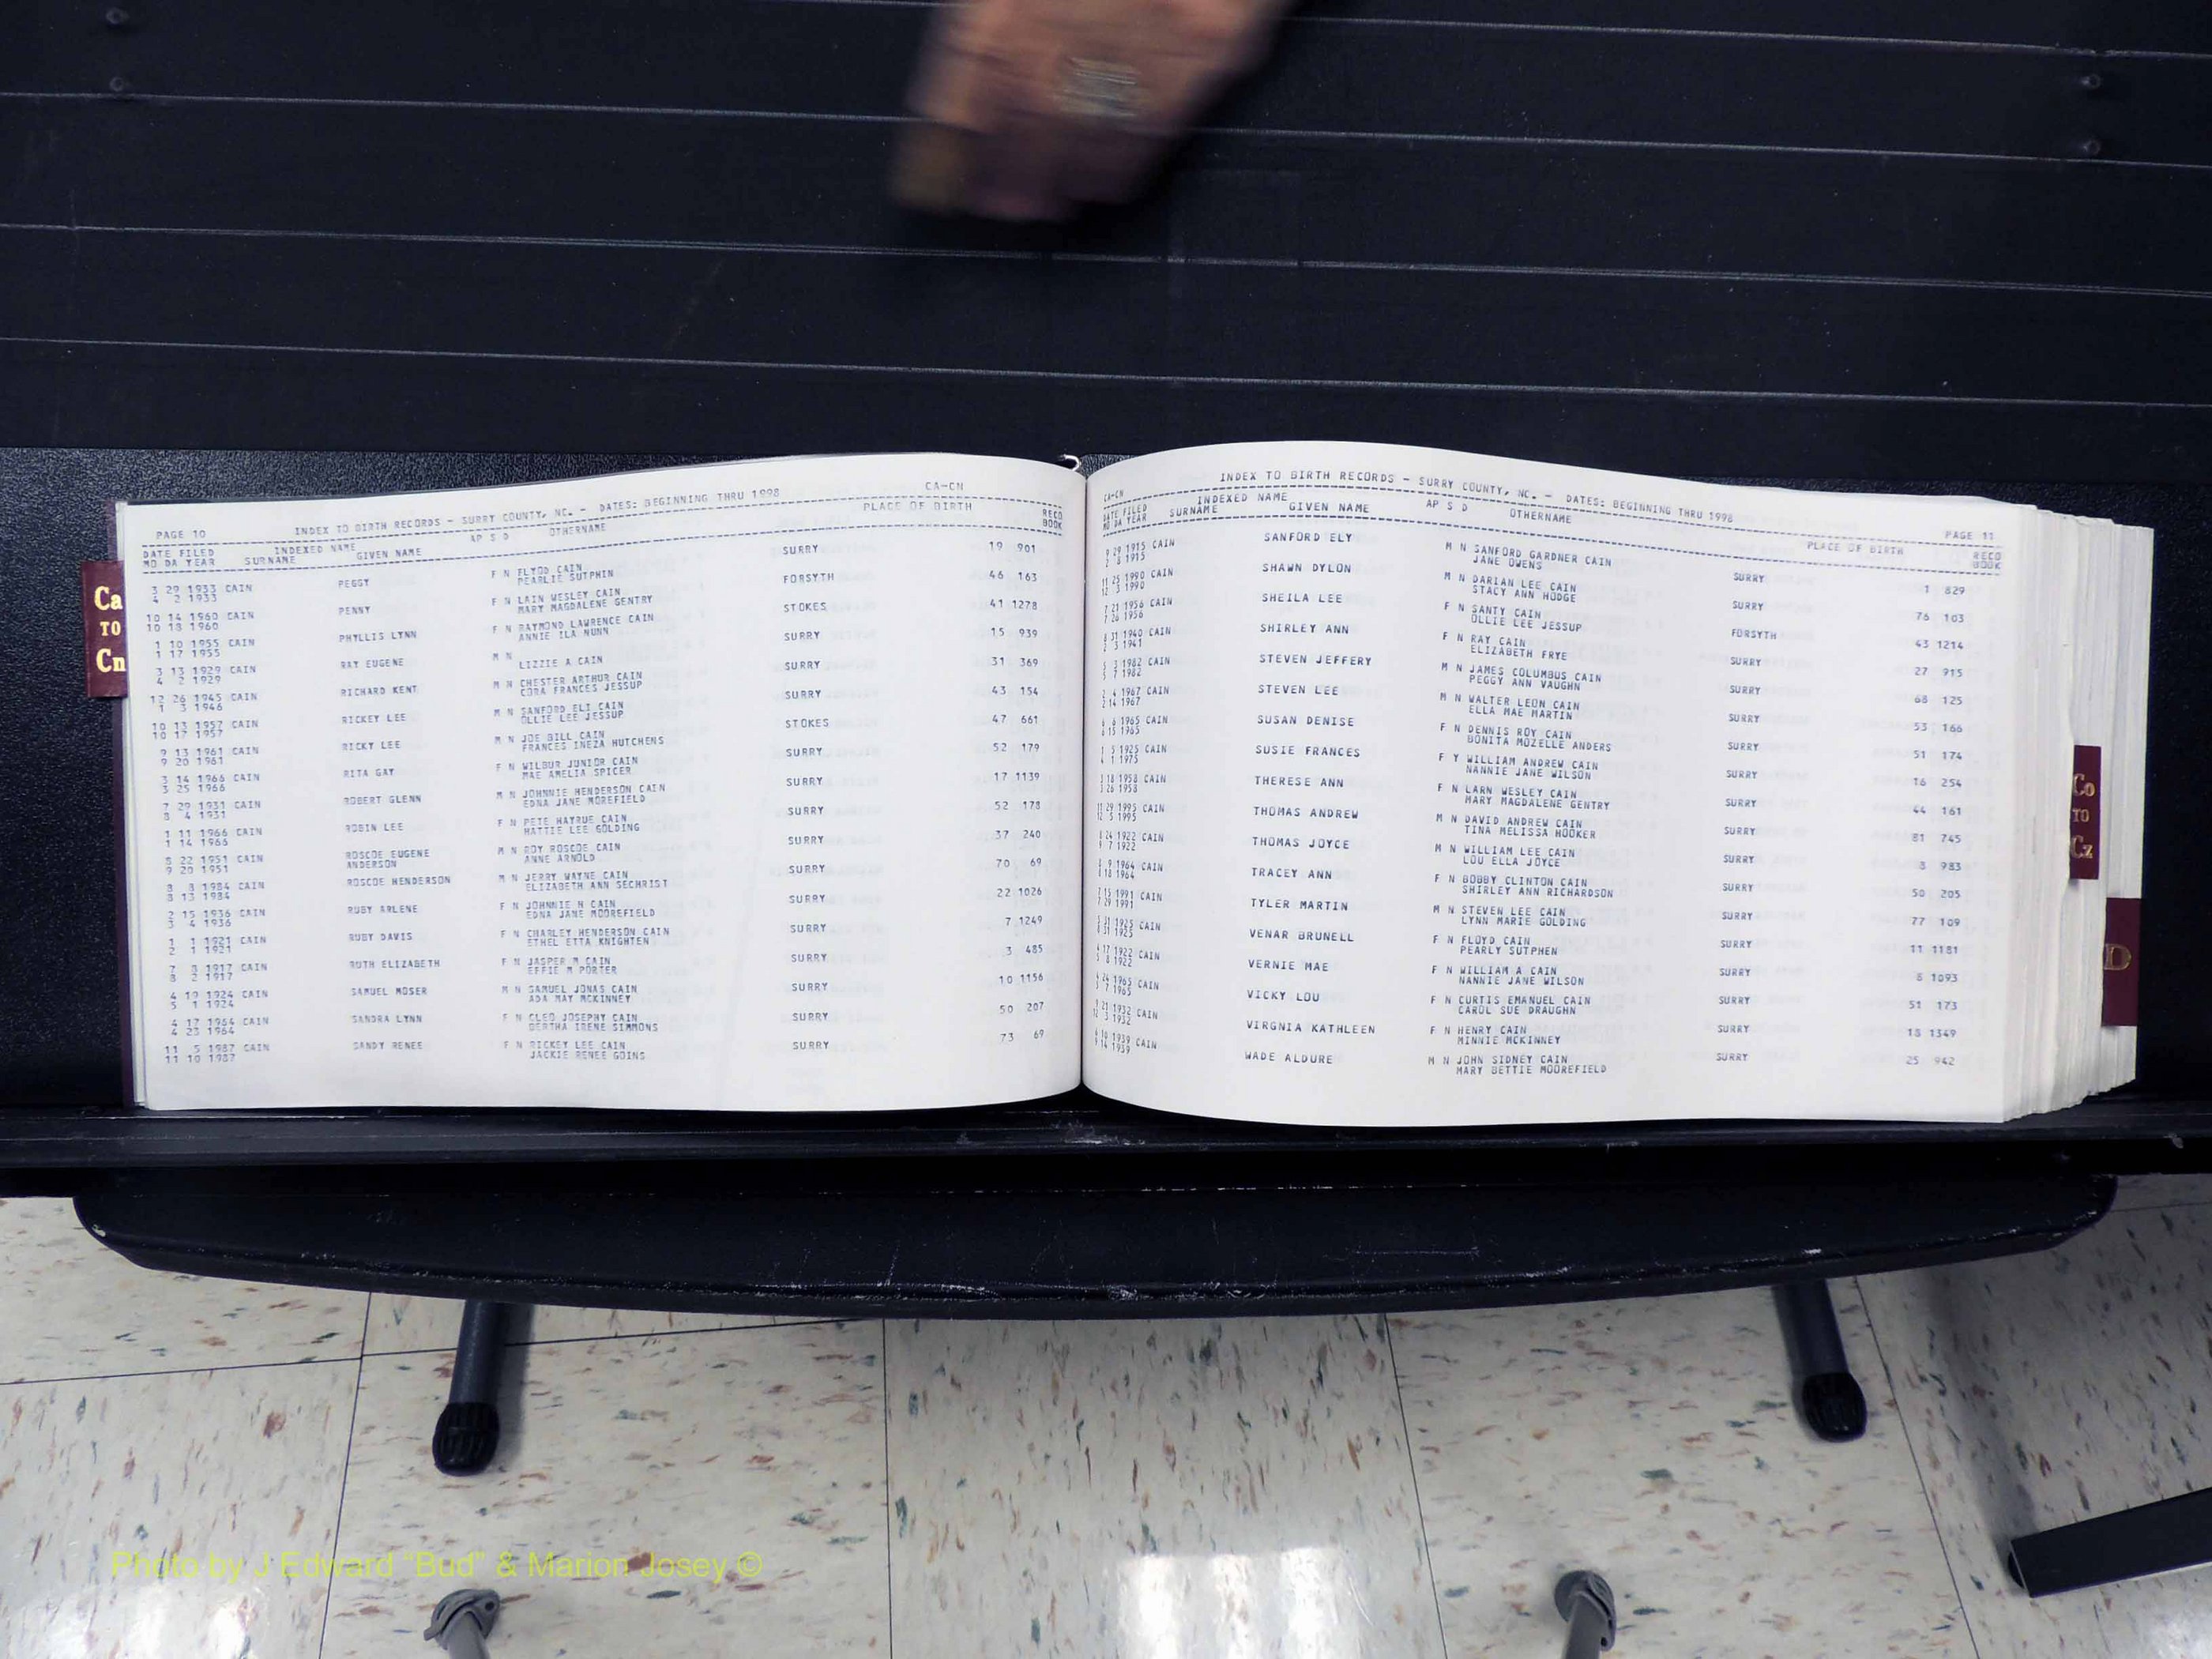 Ca
TO
Cn
PAGE 10 INDEX TO BIRTH RECORDS - SURRY COUNTY, NC. - DATES: BEGINNING THRU 1998 CA-CN
DATE FILED INDEXED NAME AP S D OTHERNAME PLACE OF BIRTH RECO
MO DA YEAR SURNAME GIVEN NAME BOOK
3 29 1933 CAIN PEGGY F N FLYOD CAIN SURRY 19 901
4 2 1933 PEARLIE SUTPHIN
10 14 1960 CAIN PENNY F N LAIN WESLEY CAIN FORSYTH 46 163
10 18 1960 MARY MAGDALENE GENTRY
1 10 1955 CAIN PHYLLIS LYNN F N RAYMOND LAWRENCE CAIN STOKES 41 1278
1 17 1955 ANNIE ILA NUNN
3 13 1929 CAIN RAY EUGENE M N SURRY 15 939
4 2 1929 LIZZIE A CAIN
12 26 1945 CAIN RICHARD KENT M N CHESTER ARTHUR CAIN SURRY 31 369
1 3 1946 CORA FRANCES JESSUP
10 13 1957 CAIN RICKEY LEE M N SANFORD ELI CAIN SURRY 43 154
10 17 1957 OLLIE LEE JESSUP
9 13 1961 CAIN RICKY LEE M N JOE BILL CAIN STOKES 47 661
9 20 1961 FRANCES INEZA HUTCHENS
3 14 1966 CAIN RITA GAY F N WILBUR JUNIOR CAIN SURRY 52 179
3 25 1966 MAE AMELIA SPICER
7 29 1931 CAIN ROBERT GLENN M N JOHNNIE HENDERSON CAIN SURRY 17 1139
8 4 1931 EDNA JANE MOREFIELD
1 11 1966 CAIN ROBIN LEE F N PETE HAYRUE CAIN SURRY 52 178
1 14 1966 HATTIE LEE GOLDING
8 22 1951 CAIN ROSCOE EUGENE M N ROY ROSCOE CAIN SURRY 37 240
9 20 1951 ANDERSON ANNE ARNOLD
8 8 1984 CAIN ROSCOE HENDERSON M N JERRY WAYNE CAIN SURRY 70 69
8 13 1984 ELIZABETH ANN SECHRIST
2 15 1936 CAIN RUBY ARLENE F N JOHNNIE H CAIN SURRY 22 1026
3 4 1936 EDNA JANE MOOREFIELD
1 1 1921 CAIN RUBY DAVIS F N CHARLEY HENDERSON CAIN SURRY 7 1249
2 1 1921 ETHEL ETTA KNIGHTEN
7 8 1917 CAIN RUTH ELIZABETH F N JASPER M CAIN SURRY 3 485
8 2 1917 EFFIE M PORTER
4 19 1924 CAIN SAMUEL MOSER M N SAMUEL JONAS CAIN SURRY 10 1156
5 1 1924 ADA MAY MCKINNEY
4 17 1964 CAIN SANDRA LYNN F N CLEO JOSEPHY CAIN SURRY 50 207
4 23 1964 BERTHA IRENE SIMMONS
11 5 1987 CAIN SANDY RENEE F N RICKEY LEE CAIN SURRY 73 69
11 10 1987 JACKIE RENEE GOINS
CA-CN INDEX TO BIRTH RECORDS - SURRY COUNTY, NC. - DATES: BEGINNING THRU 1998 PAGE 11
DATE FILED INDEXED NAME AP S D OTHERNAME PLACE OF BIRTH RECO
MO DA YEAR SURNAME GIVEN NAME BOOK
29 1915 CAIN SANFORD ELY M N SANFORD GARDNER CAIN SURRY 1 829
8 1915 JANE OWENS
11 25 1990 CAIN SHAWN DYLON M N DARIAN LEE CAIN SURRY 76 103
12 3 1990 STACY ANN HODGE
7 21 1956 CAIN SHEILA LEE F N SANTY CAIN FORSYTH 43 1214
7 26 1956 OLLIE LEE JESSUP
31 1940 CAIN SHIRLEY ANN F N RAY CAIN SURRY 27 915
3 1941 ELIZABETH FRYE
5 3 1982 CAIN STEVEN JEFFERY M N JAMES COLUMBUS CAIN SURRY 68 125
5 7 1982 PEGGY ANN VAUGHN
2 4 1967 CAIN STEVEN LEE M N WALTER LEON CAIN SURRY 53 166
2 14 1967 ELLA MAE MARTIN
6 1965 CAIN SUSAN DENISE F N DENNIS ROY CAIN SURRY 51 174
15 1965 BONITA MOZELLE ANDERS
5 1925 CAIN SUSIE FRANCES F Y WILLIAM ANDREW CAIN SURRY 16 254
1 1975 NANNIE JANE WILSON
3 18 1958 CAIN THERESE ANN F N LARN WESLEY CAIN SURRY 44 161
3 26 1958 MARY MAGDALENE GENTRY
11 29 1995 CAIN THOMAS ANDREW M N DAVID ANDREW CAIN SURRY 81 745
12 5 1995 TINA MELISSA HOOKER
24 1922 CAIN THOMAS JOYCE M N WILLIAM LEE CAIN SURRY 8 983
7 1922 LOU ELLA JOYCE
9 1964 CAIN TRACEY ANN F N BOBBY CLINTON CAIN SURRY 50 205
18 1964 SHIRLEY ANN RICHARDSON
7 15 1991 CAIN TYLER MARTIN M N STEVEN LEE CAIN SURRY 77 109
7 29 1991 LYNN MARIE GOLDING
31 1925 CAIN VENAR BRUNELL F N FLOYD CAIN SURRY 11 1181
31 1925 PEARLY SUTPHEN
17 1922 CAIN VERNIE MAE F N WILLIAM A CAIN SURRY 8 1093
8 1922 NANNIE JANE WILSON
24 1965 CAIN VICKY LOU F N CURTIS EMANUEL CAIN SURRY 51 173
7 1965 CAROL SUE DRAUGHN
21 1932 CAIN VIRGNIA KATHLEEN F N HENRY CAIN SURRY 18 1349
3 1932 MINNIE MCKINNEY
10 1939 CAIN WADE ALDURE M N JOHN SIDNEY CAIN SURRY 25 942
14 1939 MARY BETTIE MOOREFIELD
Co
TO
Cz
D
Photo by J Edward "Bud" & Marion Josey ©